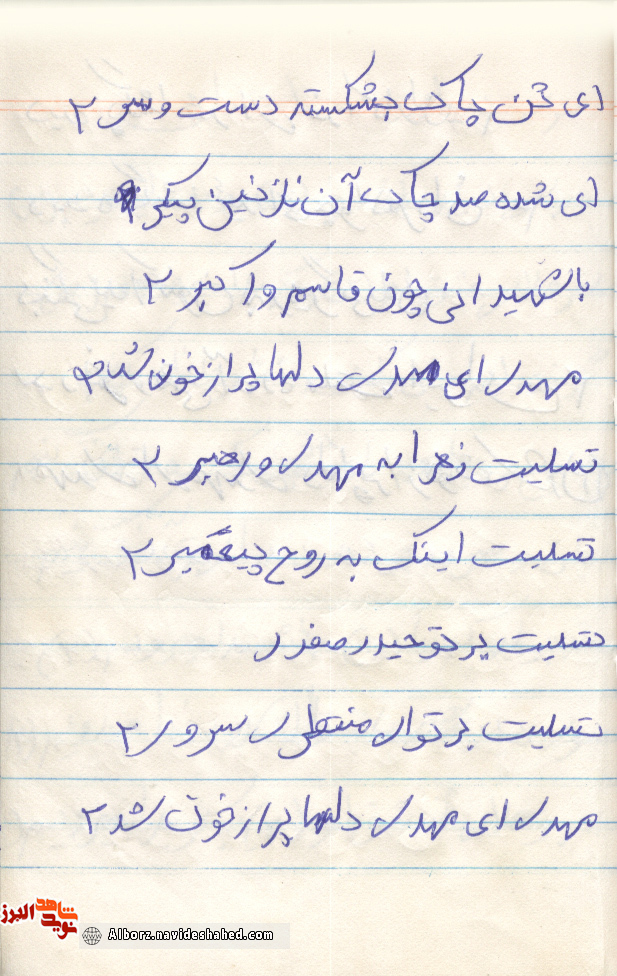 ای تن چاک بشکسته دست و سر ۲
ای شده صد چاک آن نازنین پیکر ۲
با شهیدانی چون قاسم و اکبر ۲
مهدی ای مهدی دلها پر از خون شد ۲
تسلیت زهرا به مهدی و رهبر ۲
تسلیت اینک به روح پیغمبر ۲
تسلیت بر تو حیدر صفدر
تسلیت بر توای منتظری سرور ۲
مهدی ای مهدی دلها پر از خون شد ۲
نوید شاهد البرز
Alborz.navideshahed.com